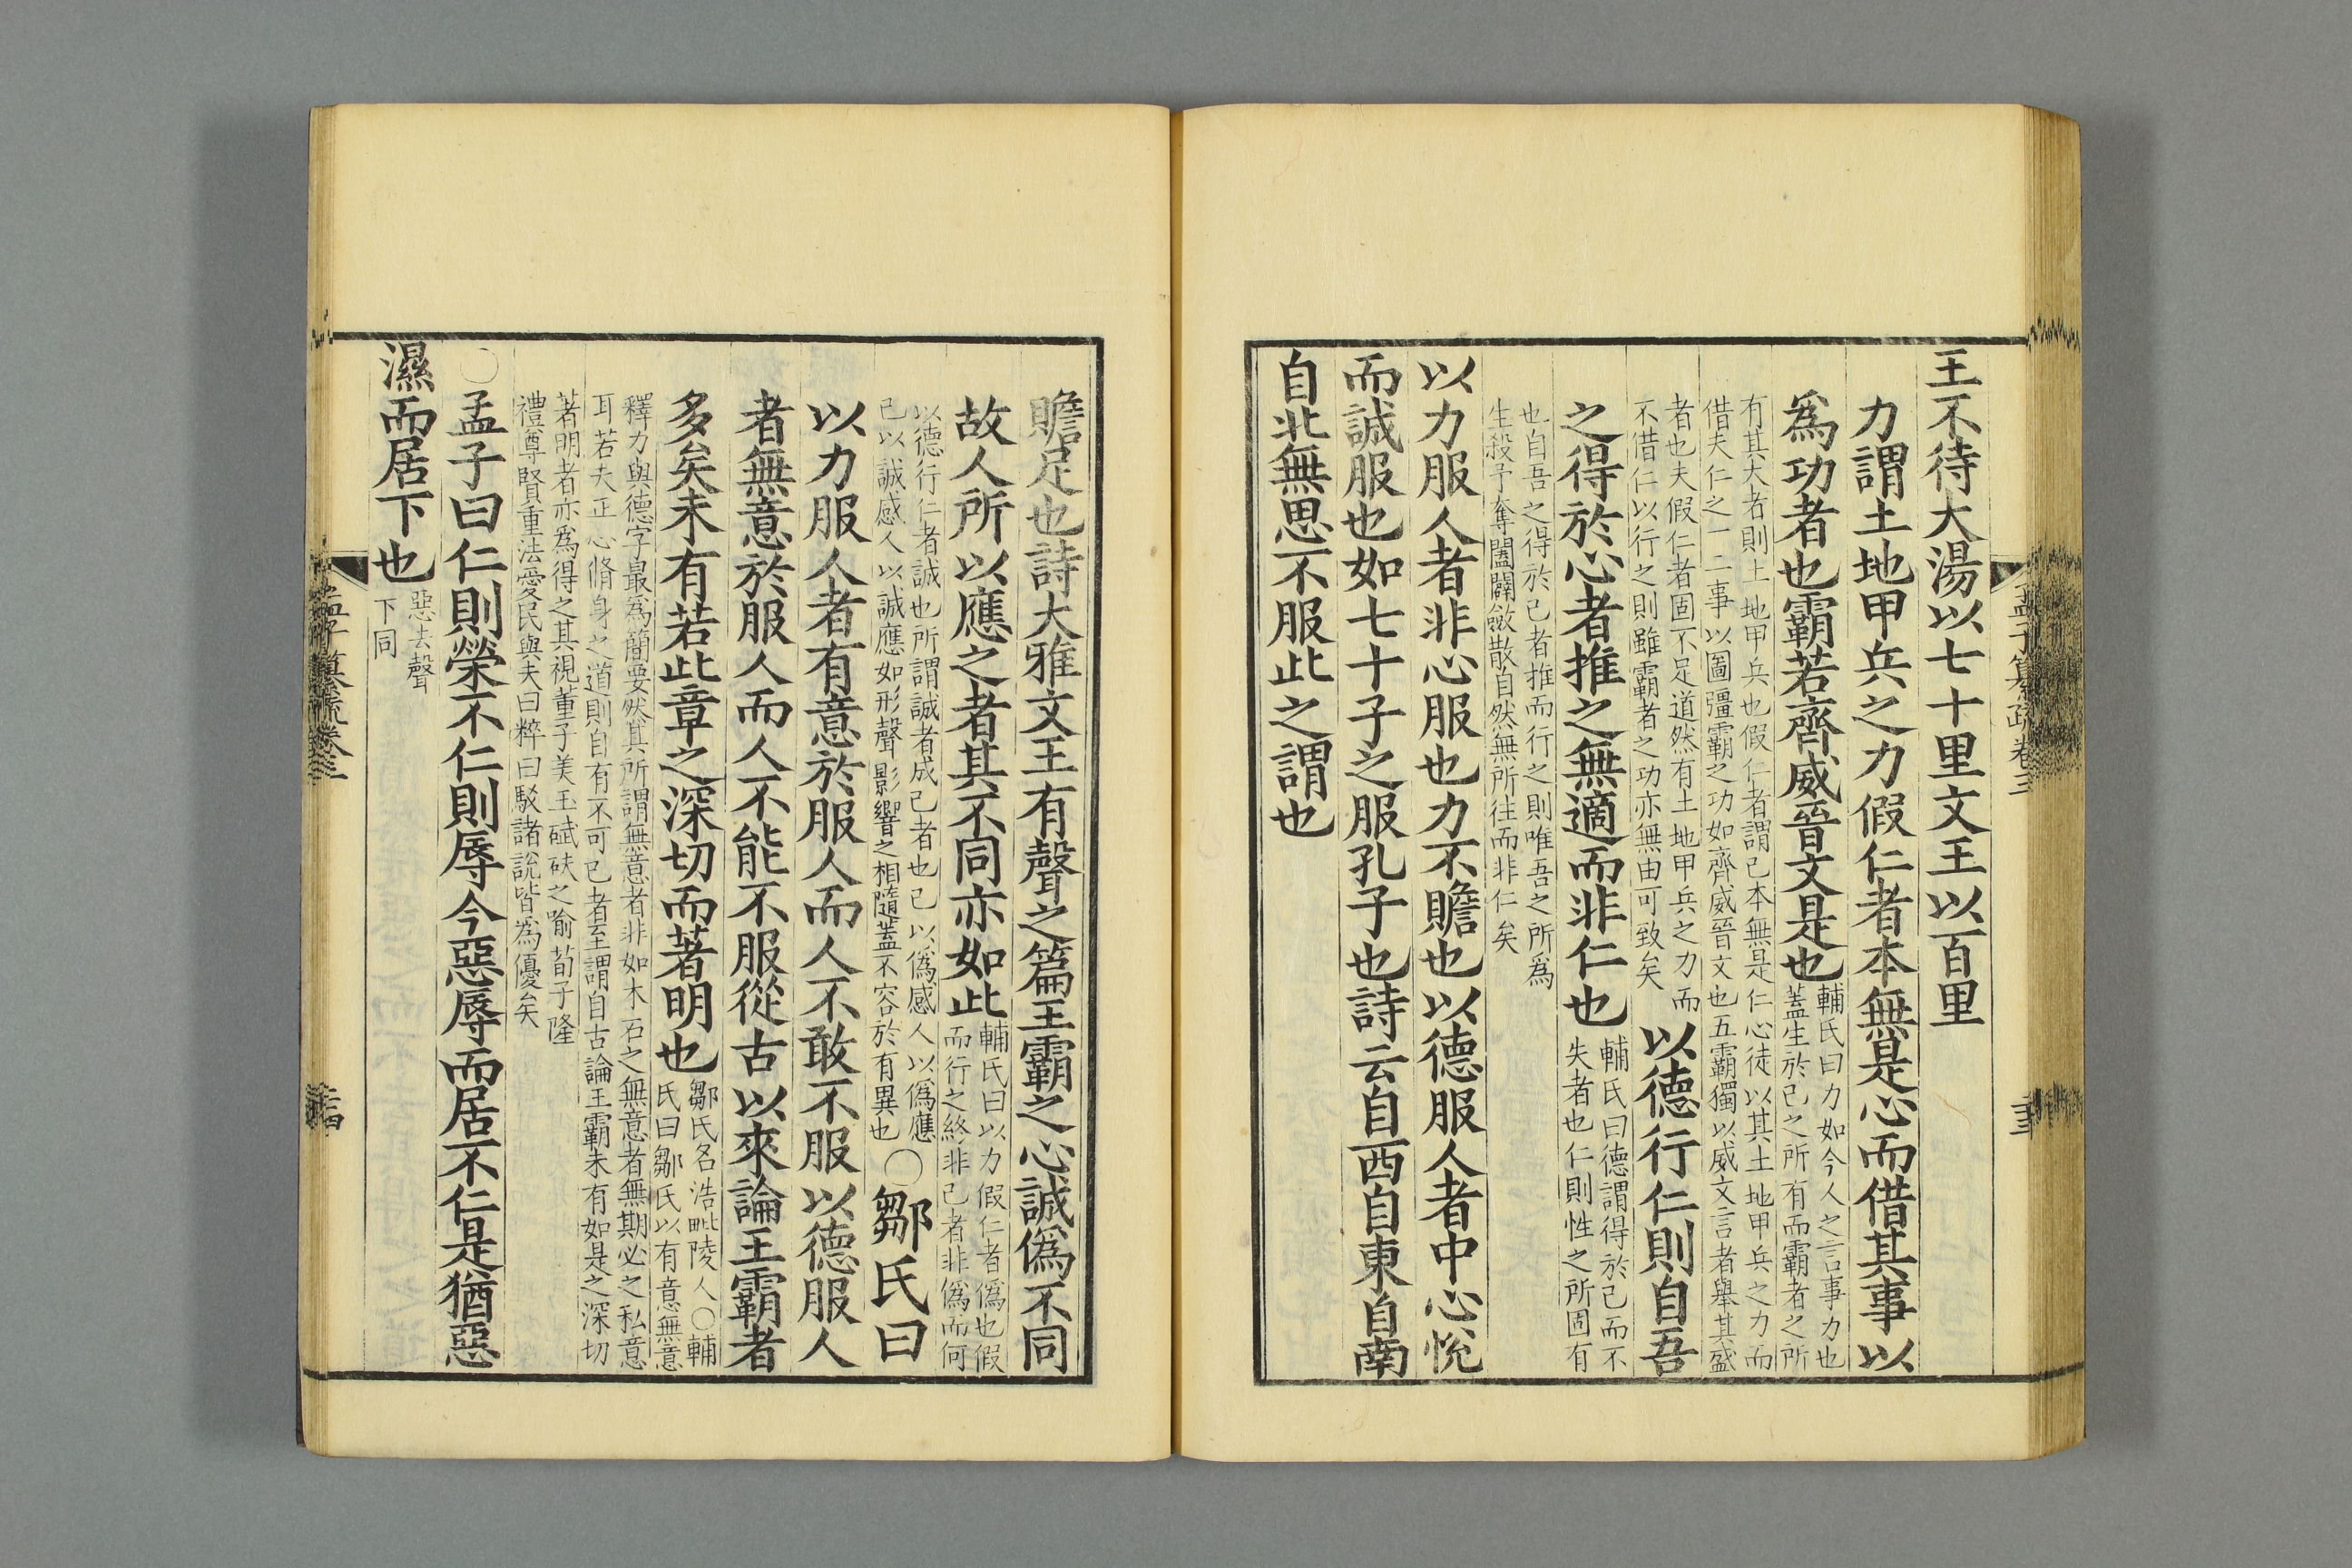 王不待大湯以七十里文王以百里
力謂土地甲兵之力假仁者本無是心而借其事以
爲功者也霸若齊威晉文是也
輔氏曰力如今人之言事力也
蓋生於己之所有而霸者之所
有其大者則土地甲兵也假仁者謂己本無是仁心徒以其土地甲兵之力而
借夫仁之一二事以圖彊霸之功如齊威晉文也五霸獨以威文言者舉其盛
者也夫假仁者固不足道然有土地甲兵之力而
不借仁以行之則雖霸者之功亦無由可致矣
以德行仁則自吾
之得於心者推之無適而非仁也
輔氏曰德謂得於己而不
失者也仁則性之所固有
也自吾之得於己者推而行之則唯吾之所爲
生殺予奪闔闢斂散自然無所往而非仁矣
以力服人者非心服也力不贍也以德服人者中心悅
而誠服也如七十子之服孔子也詩云自西自東自南
自北無思不服此之謂也
孟子纂疏卷三
贍足也詩大雅文王有聲之篇王霸之心誠僞不同
故人所以應之者其不同亦如此
輔氏曰以力假仁者僞也假
而行之終非己者非僞而何
以德行仁者誠也所謂誠者成己者也己以僞感人以僞應
己以誠感人以誠應如形聲影響之相隨蓋不容於有異也
○鄒氏曰
以力服人者有意於服人而人不敢不服以德服人
者無意於服人而人不能不服從古以來論王霸者
多矣未有若此章之深切而著明也
鄒氏名浩毗陵人○輔
氏曰鄒氏以有意無意
釋力與德字最爲簡要然其所謂無意者非如木石之無意者無期必之私意
耳若夫正心脩身之道則自有不可已者至謂自古論王霸未有如是之深切
著明者亦爲得之其視董子美玉碔砆之喻荀子隆
禮尊賢重法愛民與夫曰粹曰駁諸說皆爲優矣
○孟子曰仁則榮不仁則辱今惡辱而居不仁是猶惡
濕而居下也
惡去聲
下同
孟子纂疏卷三